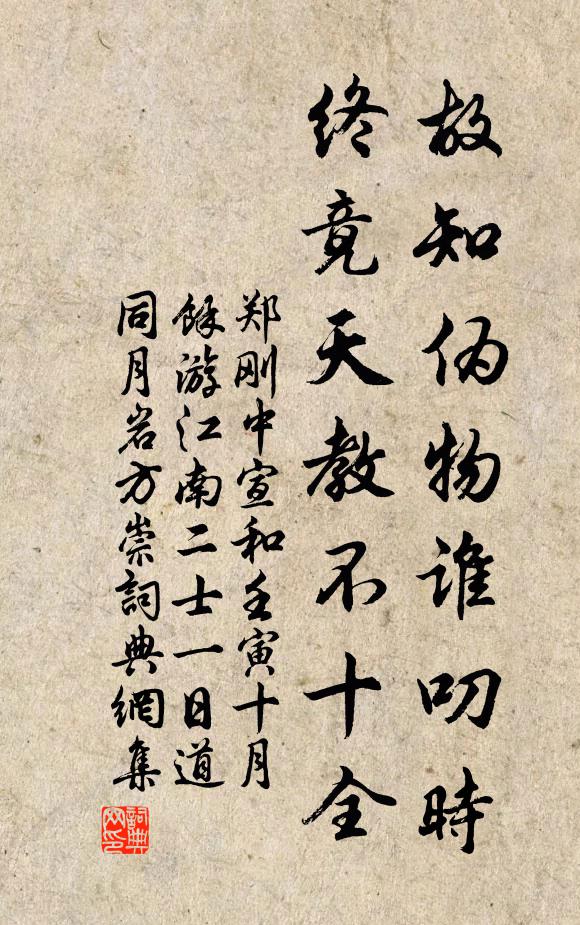 故知伪物谁叨时
终竟天教不十全
郑刚中宣和壬寅十月
馀游江南二士一日道
同月岩方崇詞典網集
詞典网印